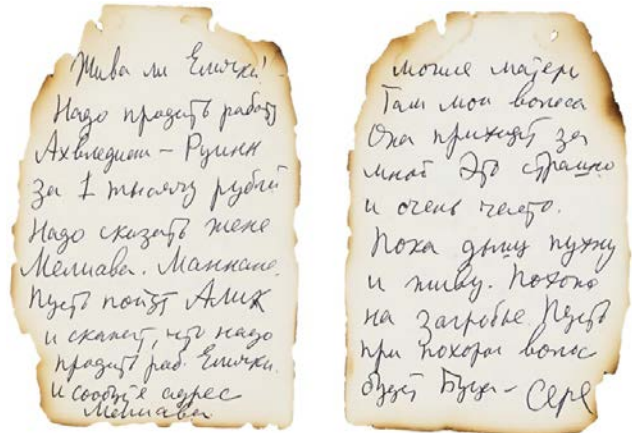 Жива ли Еличка!
Надо продать работу
Ахвледиани – Руины
за 1 тысячу рублей
Надо сказать жене
Мелиава. Манана.
Пусть пойдёт Алик
и скажет, что надо
продать раб. Елички.
и сообщи адрес
Мелиава
могиле матери
Там мои волоса
Она приходит за
мной Это страшно
и очень часто.
Пока дышу нужну
и живу. Похоже
на загробье. Пусть
при похорон волос
будет Буци – Серг